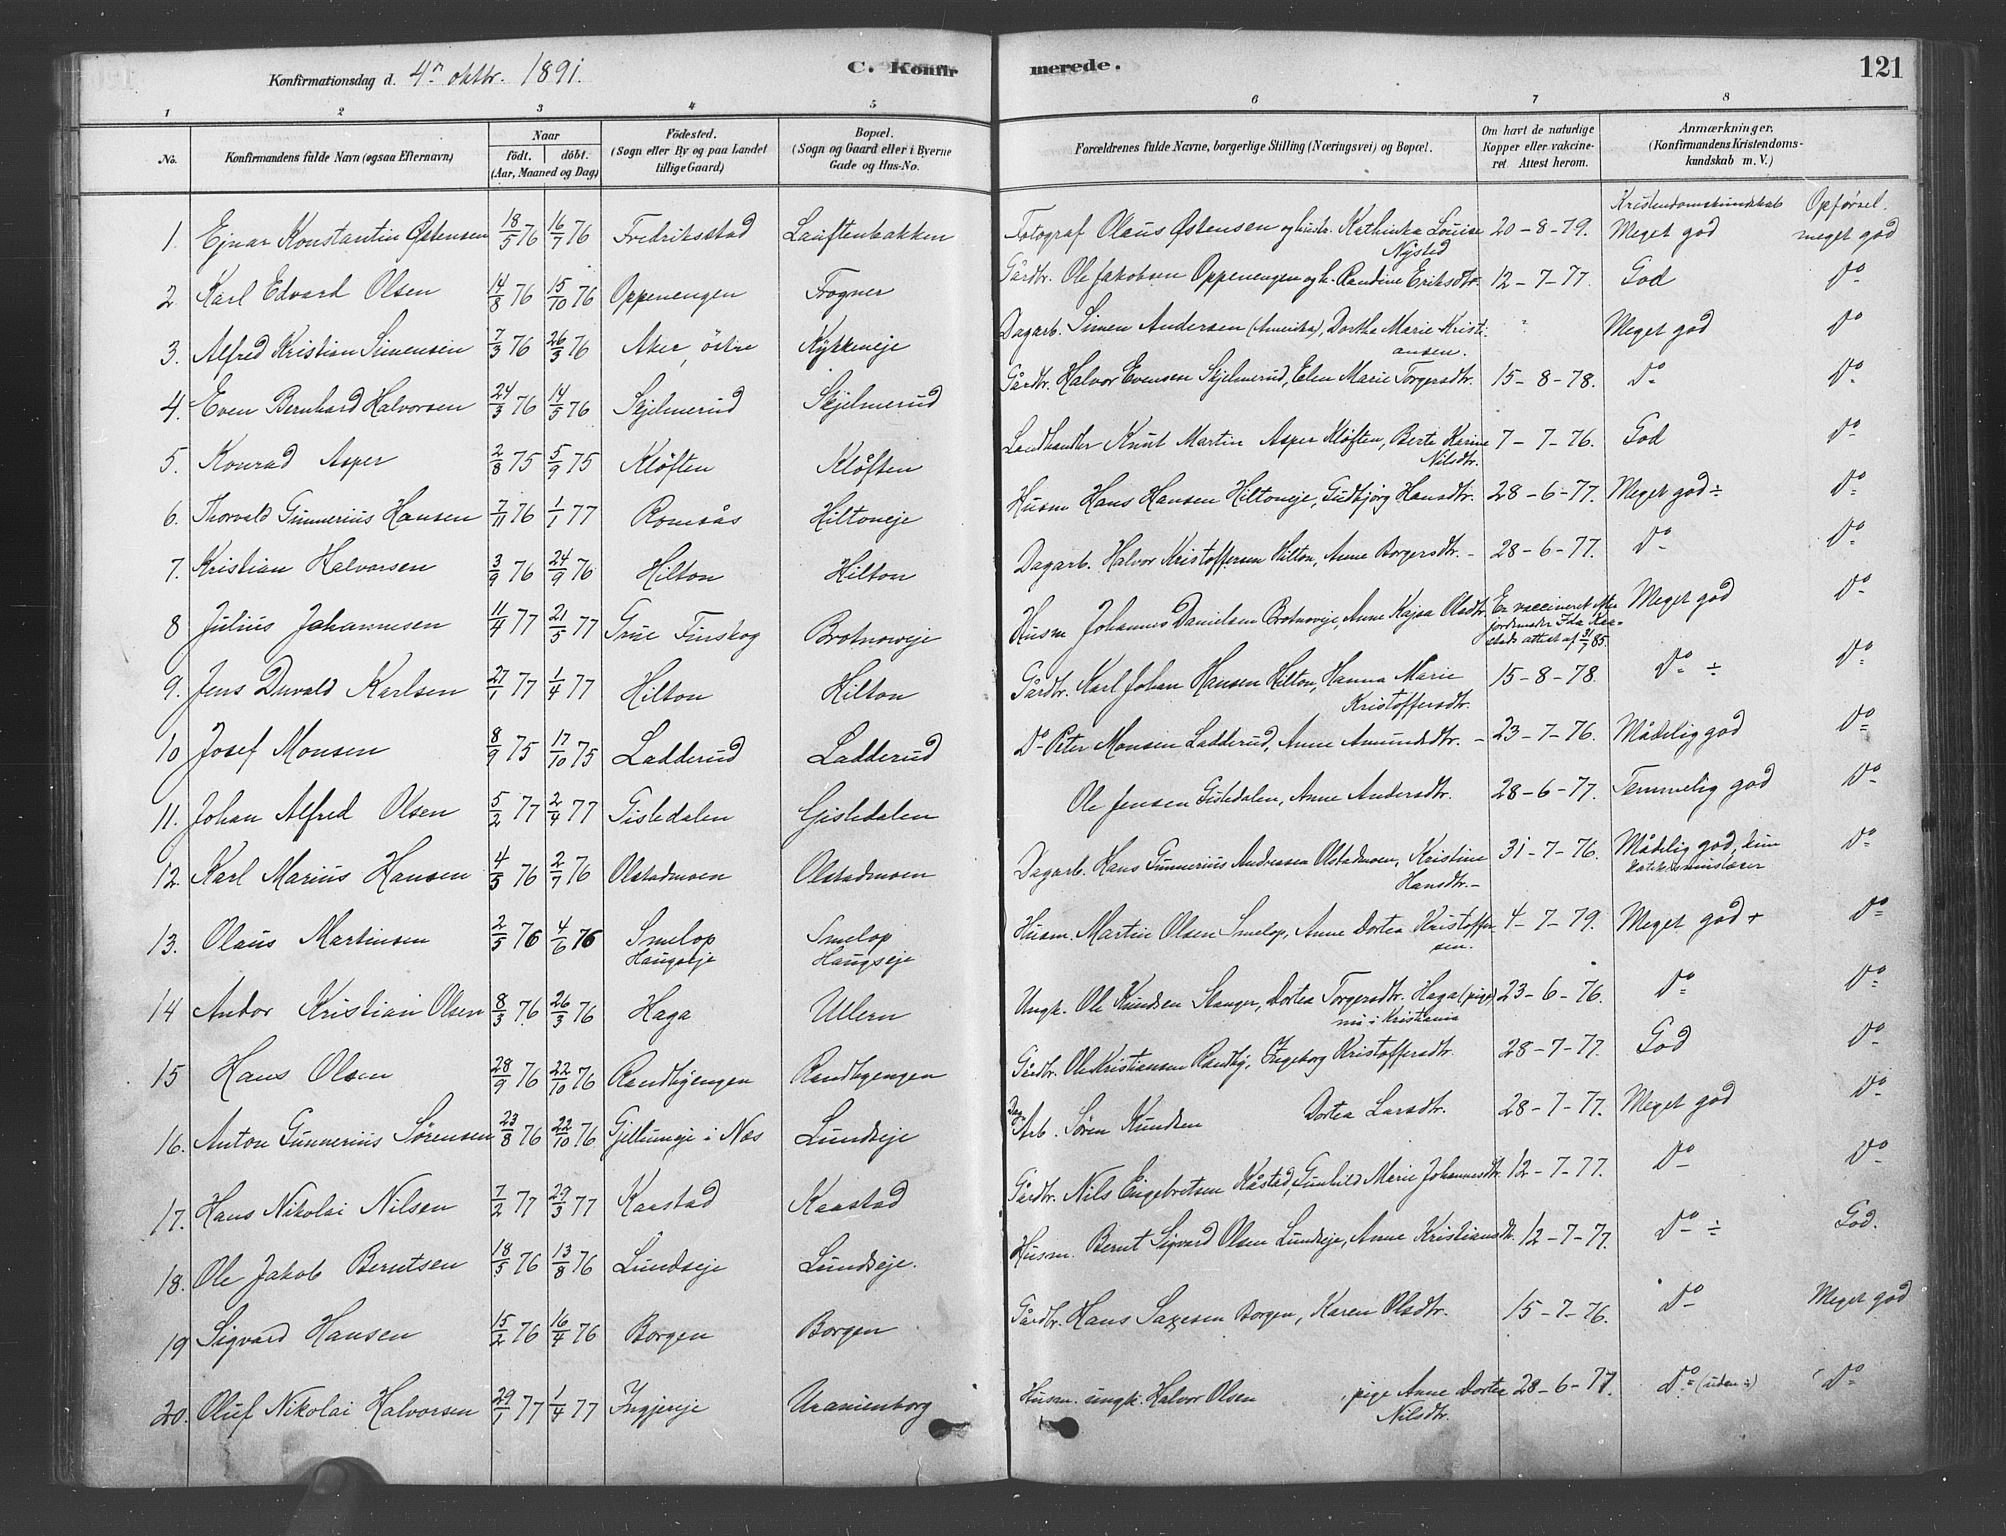 Konfirmationsdag d. 4de oktbr. 1891. C. Konfirmerede. 121
1 2 3 4 5 6 7 8
No. Konfirmandens fulde Navn (ogsaa Efternavn) Naar født. døbt. (Aar, Maaned og Dag) Fødested. (Sogn eller By og paa Landet tillige Gaard) Bopæl. (Sogn og Gaard eller i Byerne Gade og Hus-No. Forældrenes fulde Navne, borgerlige Stilling (Næringsvei) og Bopæl. Om havt de naturlige Kopper eller vakcineret Attest herom. Anmærkninger. (Konfirmandens Kristendomskundskab m. V.)
Kristendomskundskab Opførsel.
1. Ejnar Konstantin Østensen 18/5 76 16/7 76 Fredriksstad Lauftenbakken Fotograf Olaus Østensen og hustr. Kathinka Louise Nysted 20-8-79. Meget god meget god
2. Karl Edvard Olsen 14/8 76 15/10 76 Oppenengen Frogner Gårdbr. Ole Jakobsen Oppenengen og h. Randine Eriksdtr. 12-7-77. God Do
3. Alfred Kristian Simensen 7/3 76 26/3 76 Aker, östre Kykkeneje Dagarb. Simen Andersen (Amerika), Dorthe Marie Kristiansen. Meget god Do
4. Even Bernhard Halvorsen 24/3 76 14/5 76 Skjelmerud Skjelmerud Gårdbr. Halvor Evensen Skjelmerud, Elen Marie Torgersdtr. 15-8-78. Do Do
5. Konrad Asper 2/8 75 5/9 75 Kløften Kløften Landhandler Knut Martin Asper Kløften, Berte Karine Nilsdtr. 7-7-76. God Do
6. Thorvald Gunnerius Hansen 7/11 76 1/1 77 Romsås Hiltoneje Husm Hans Hansen Hiltoneje, Gudbjørg Hansdtr. 28-6-77. Meget god ÷ Do
7. Kristian Halvorsen 3/9 76 24/9 76 Hilton Hilton Dagarb. Halvor Kristoffersen Hilton, Anne Borgersdtr. 28-6-77. Do Do
8 Julius Johannesen 11/4 77 21/5 77 Grue Finskog Brotnoveje Husm Johannes Danielsen Brotnoveje, Anne Kajsa Olsdtr. Er vaccineret efter jordemoder attest af 31/7 85. Meget god Do
9. Jens Duvald Karlsen 27/1 77 1/4 77 Hilton Hilton Gårdbr. Karl Johan Hansen Hilton, Hanna Marie Kristoffersdtr. 15-8-78. Do ÷ Do
10 Josef Monsen 8/9 75 17/10 75 Ladderud Ladderud Do Peter Monsen Ladderud, Anne Amundsdtr. 23-7-76. Mådelig god Do
11. Johan Alfred Olsen 5/2 77 2/4 77 Gisledalen Gisledalen Ole Jensen Gisledalen, Anne Andersdtr. 28-6-77. Temmelig god Do
12. Karl Marius Hansen 4/5 76 2/7 76 Olstadmoen Olstadmoen Dagarb. Hans Gunnerius Andreasen Olstadmoen, Kristine Hansdtr. 31-7-76. Mådelig god, kun Do
13. Olaus Martinsen 2/5 76 4/6 76 Smelop Haugseje Smelop Haugseje Husm. Martin Olsen Smelop, Anne Dortea Kristoffersen. 4-7-79. Meget god + Do
14 Andor Kristian Olsen 8/3 76 26/3 76 Haga Ullern Ungk. Ole Knudsen Stanger, Dortea Torgersdtr. Haga (pige) nu i Kristiania 23-6-76. Do Do
15 Hans Olsen 28/9 76 22/10 76 Randbyengen Randbyengen Gårdbr. Ole Kristiansen Randby, Ingeborg Kristoffersdtr. 28-7-77. God Do
16. Anton Gunnerius Sørensen 23/8 76 22/10 76 Gjellumeje i Næs Lundseje Dag Arb. Søren Knudsen Dortea Larsdtr. 28-7-77. Meget god Do
17. Hans Nikolai Nilsen 7/2 77 29/3 77 Kaastad Kaastad Gårdbr. Nils Engebretsen Kåstad, Gunhild Marie Johannesdtr. 12-7-77. Do Do
18. Ole Jakob Berntsen 18/5 76 13/8 76 Lundseje Lundseje. Husm. Bernt Sigvard Olsen Lundseje, Anne Kristiansdtr. 12-7-77. Do ÷ God.
19 Sigvard Hansen 15/2 76 16/4 76 Borgen Borgen Gårdbr. Hans Saxesen Borgen, Karen Olsdtr. 15-7-76. Do Meget god
20. Oluf Nikolai Halvorsen 29/1 77 1/4 77 Ingjereje Uranienborg Husm. ungk. Halvor Olsen, pige Anne Dortea Nilsdtr. 28-6-77. Do (uden ÷) Do